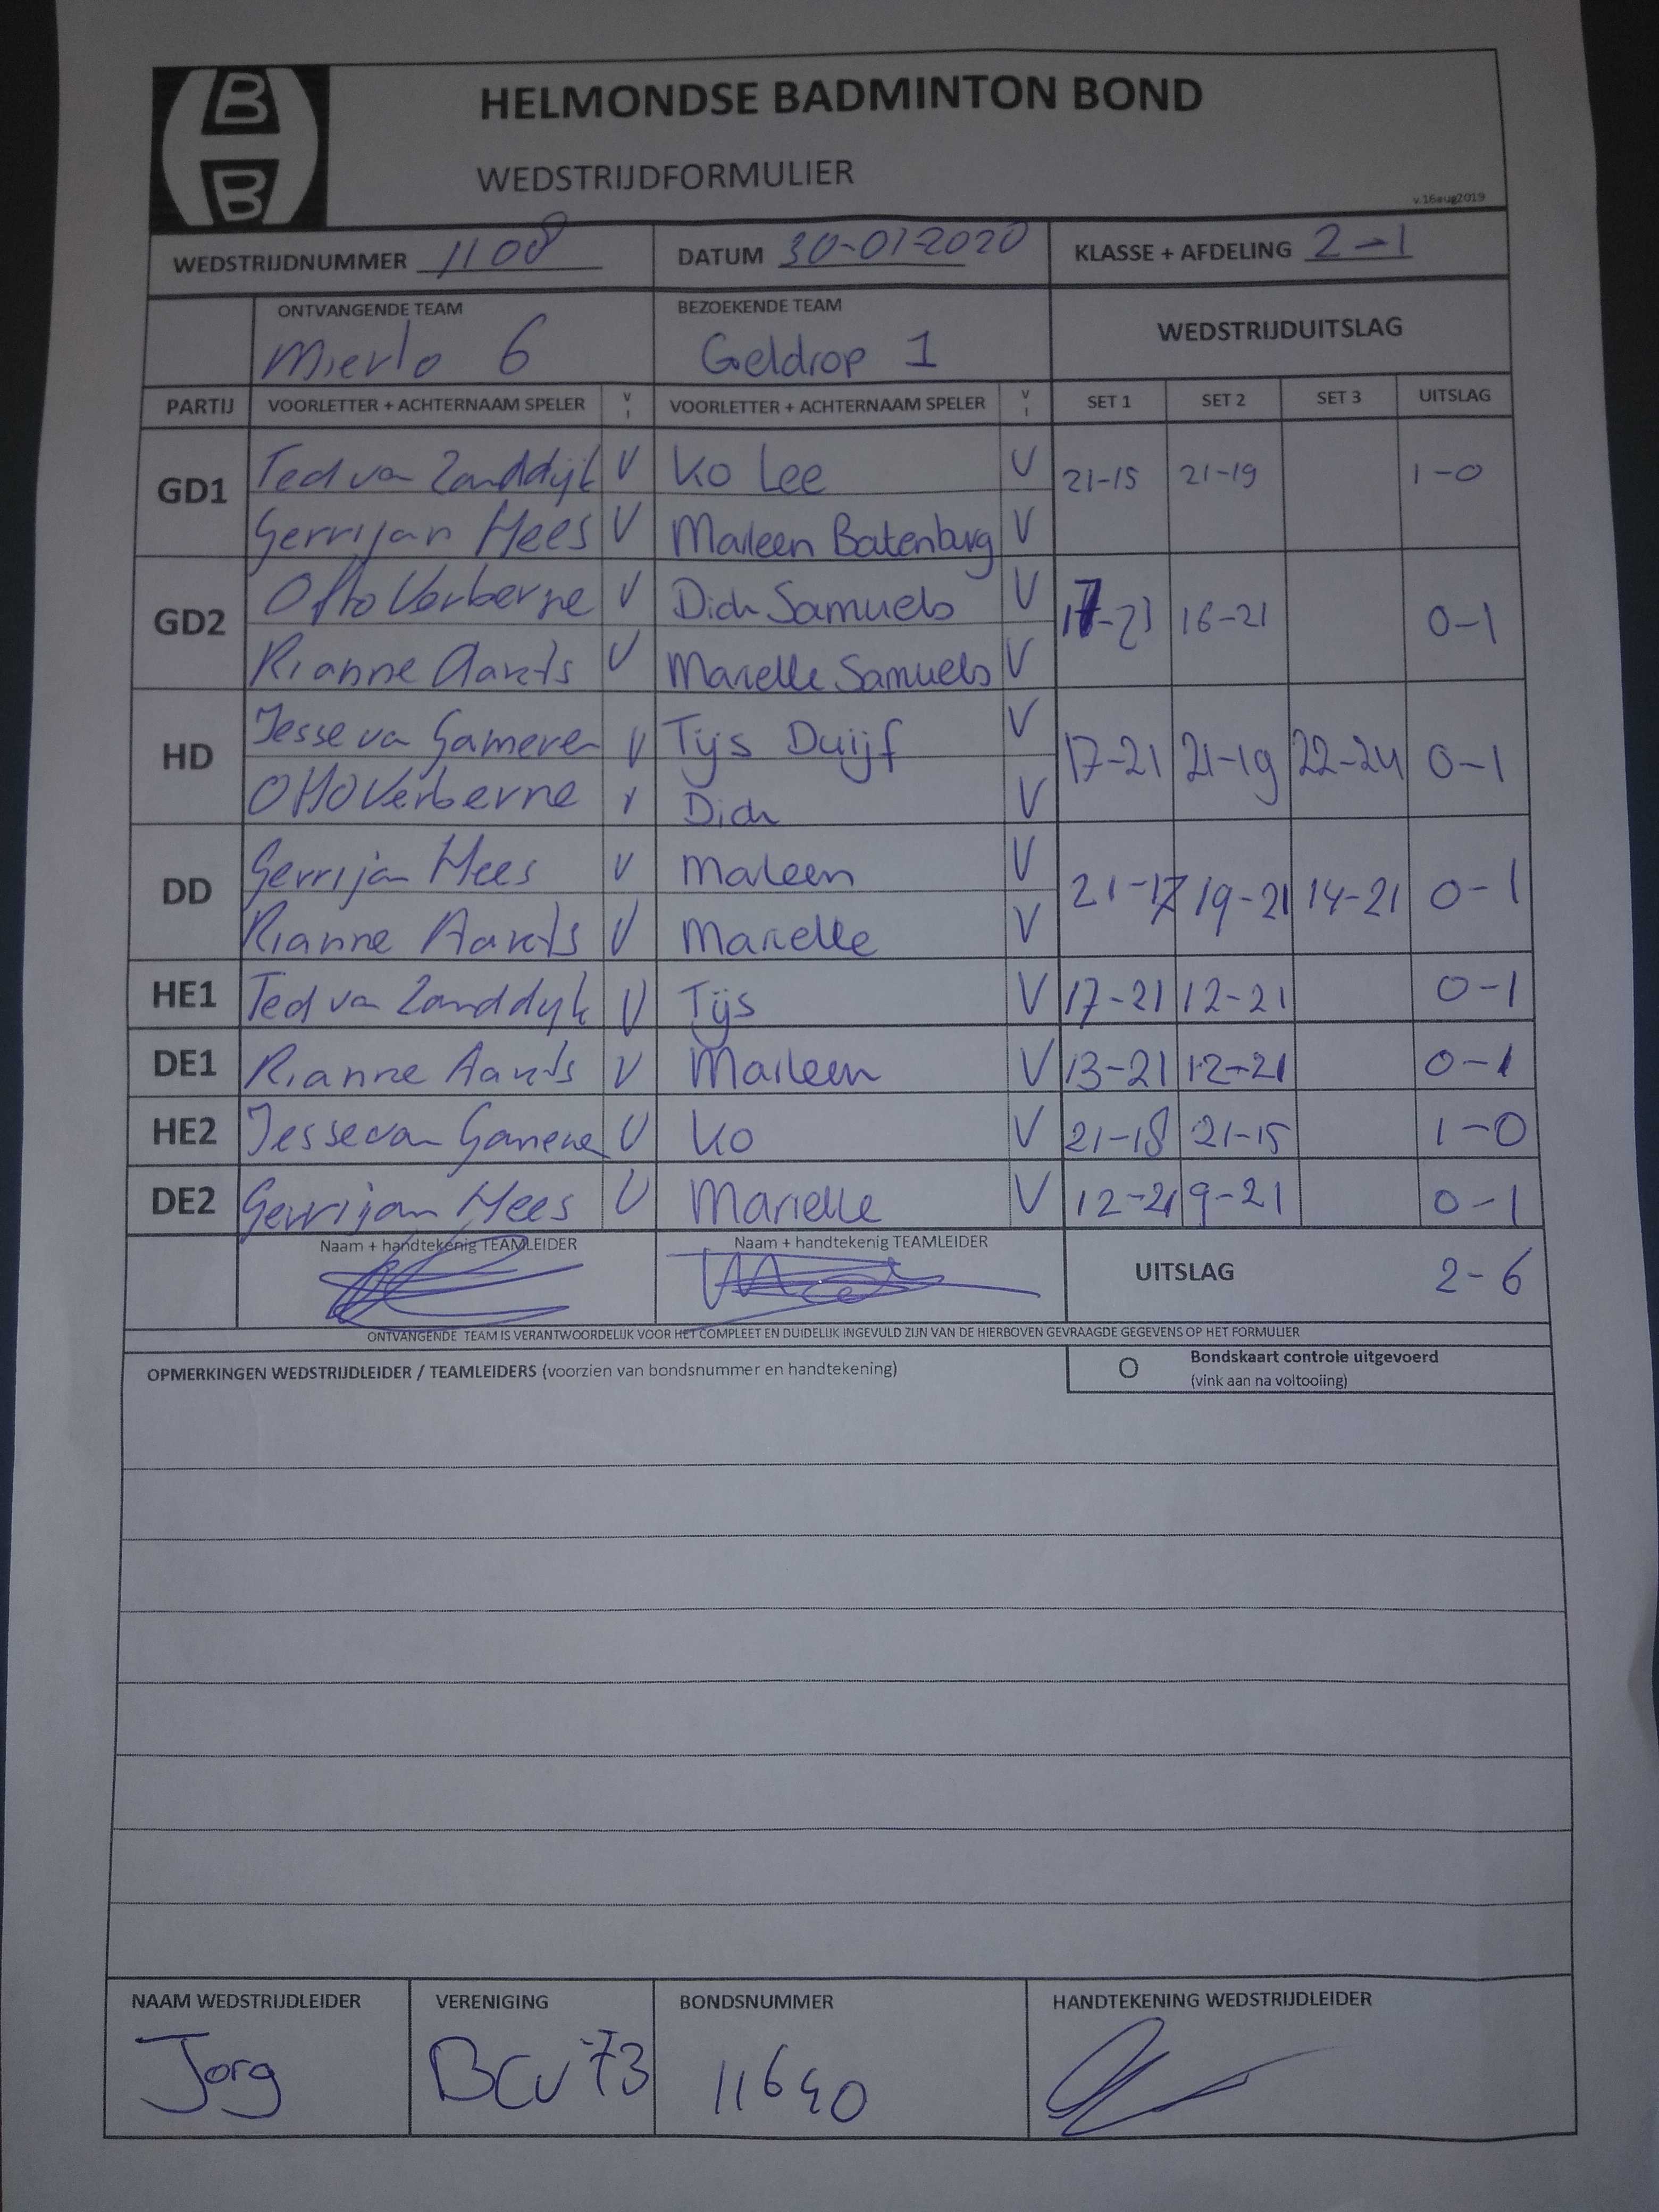 B
B
HELMONDSE BADMINTON BOND
WEDSTRIJDFORMULIER
v.16aug2019
WEDSTRIJDNUMMER 1108 DATUM 30-01-2020 KLASSE + AFDELING 2-1
ONTVANGENDE TEAM BEZOEKENDE TEAM WEDSTRIJDUITSLAG
Mierlo 6 Geldrop 1
PARTIJ VOORLETTER + ACHTERNAAM SPELER V I VOORLETTER + ACHTERNAAM SPELER V I SET 1 SET 2 SET 3 UITSLAG
GD1 Ted van Zanddijk V Ko Lee V 21-15 21-19 1-0
Gerrijan Mees V Marleen Batenburg V
GD2 Otto Verberne V Dick Samuels V 17-21 16-21 0-1
Rianne Aarts V Marielle Samuels V
HD Jesse van Gameren V Tijs Duijf V 17-21 21-19 22-24 0-1
Otto Verberne V Dick V
DD Gerrijan Mees V Marleen V 21-17 19-21 14-21 0-1
Rianne Aarts V Marielle V
HE1 Ted van Zanddijk V Tijs V 17-21 12-21 0-1
DE1 Rianne Aarts V Marleen V 13-21 12-21 0-1
HE2 Jesse van Gameren V Ko V 21-18 21-15 1-0
DE2 Gerrijan Mees V Marielle V 12-21 9-21 0-1
Naam + handtekenig TEAMLEIDER Naam + handtekenig TEAMLEIDER UITSLAG 2-6
ONTVANGENDE TEAM IS VERANTWOORDELIJK VOOR HET COMPLEET EN DUIDELIJK INGEVULD ZIJN VAN DE HIERBOVEN GEVRAAGDE GEGEVENS OP HET FORMULIER
OPMERKINGEN WEDSTRIJDLEIDER / TEAMLEIDERS (voorzien van bondsnummer en handtekening) O Bondskaart controle uitgevoerd
(vink aan na voltooiing)
NAAM WEDSTRIJDLEIDER VERENIGING BONDSNUMMER HANDTEKENING WEDSTRIJDLEIDER
Jorg BCV'73 11640